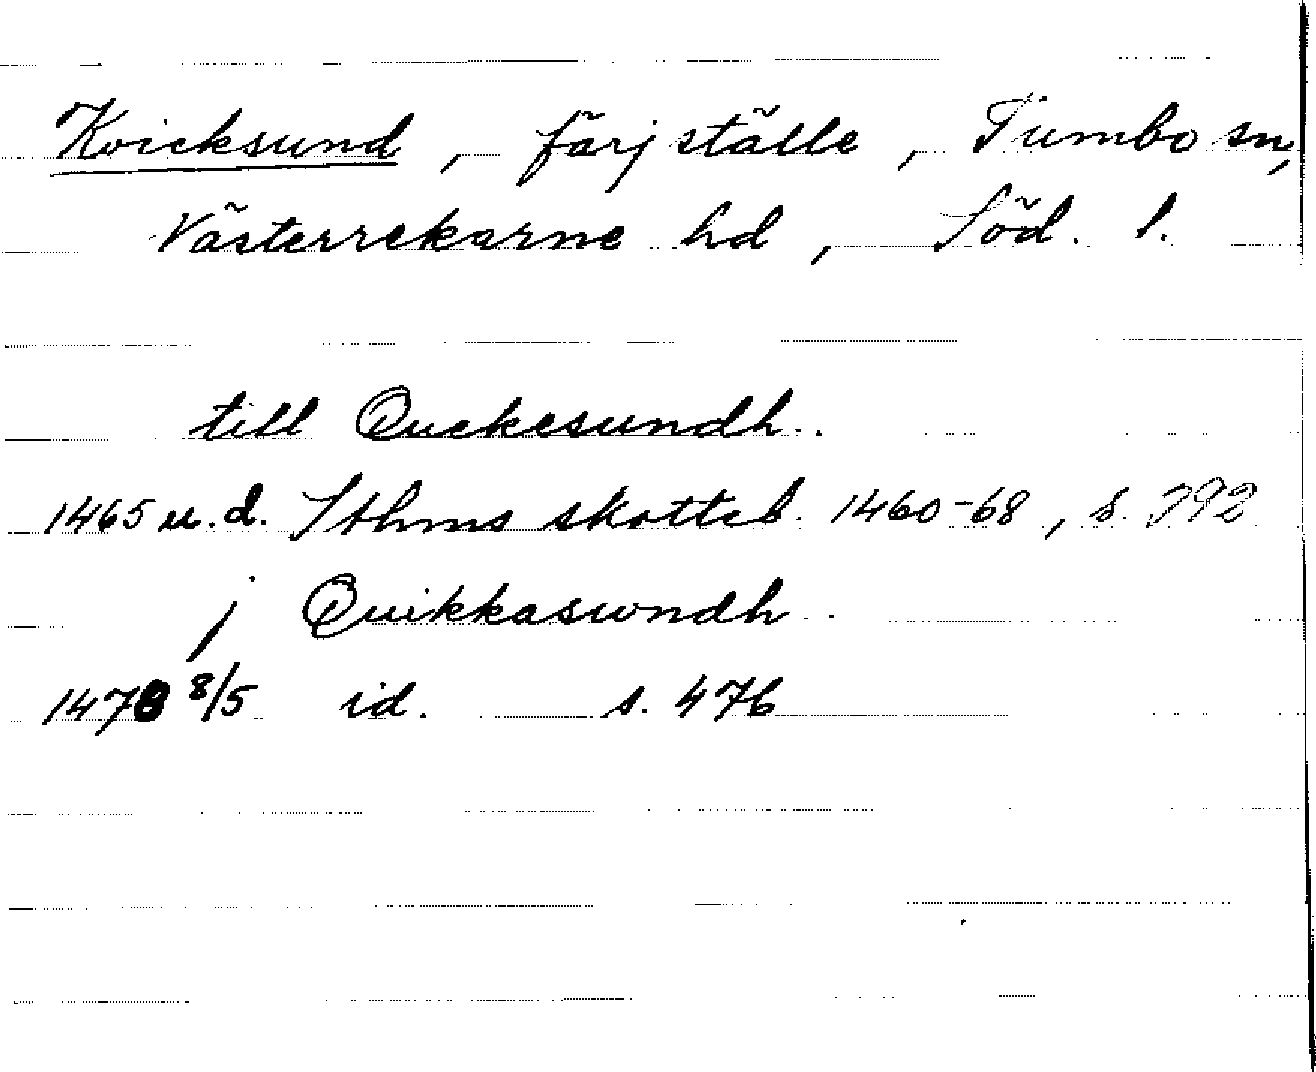 Kvicksund, färjställe, Tumbo sn,
Västerrekarne hd, Söd. l.
till Quekesundh.
1465 u.d. Sthms skotteb. 1460-68, s. 292
j Quikkasundh.
1470 8/5 id. s. 476